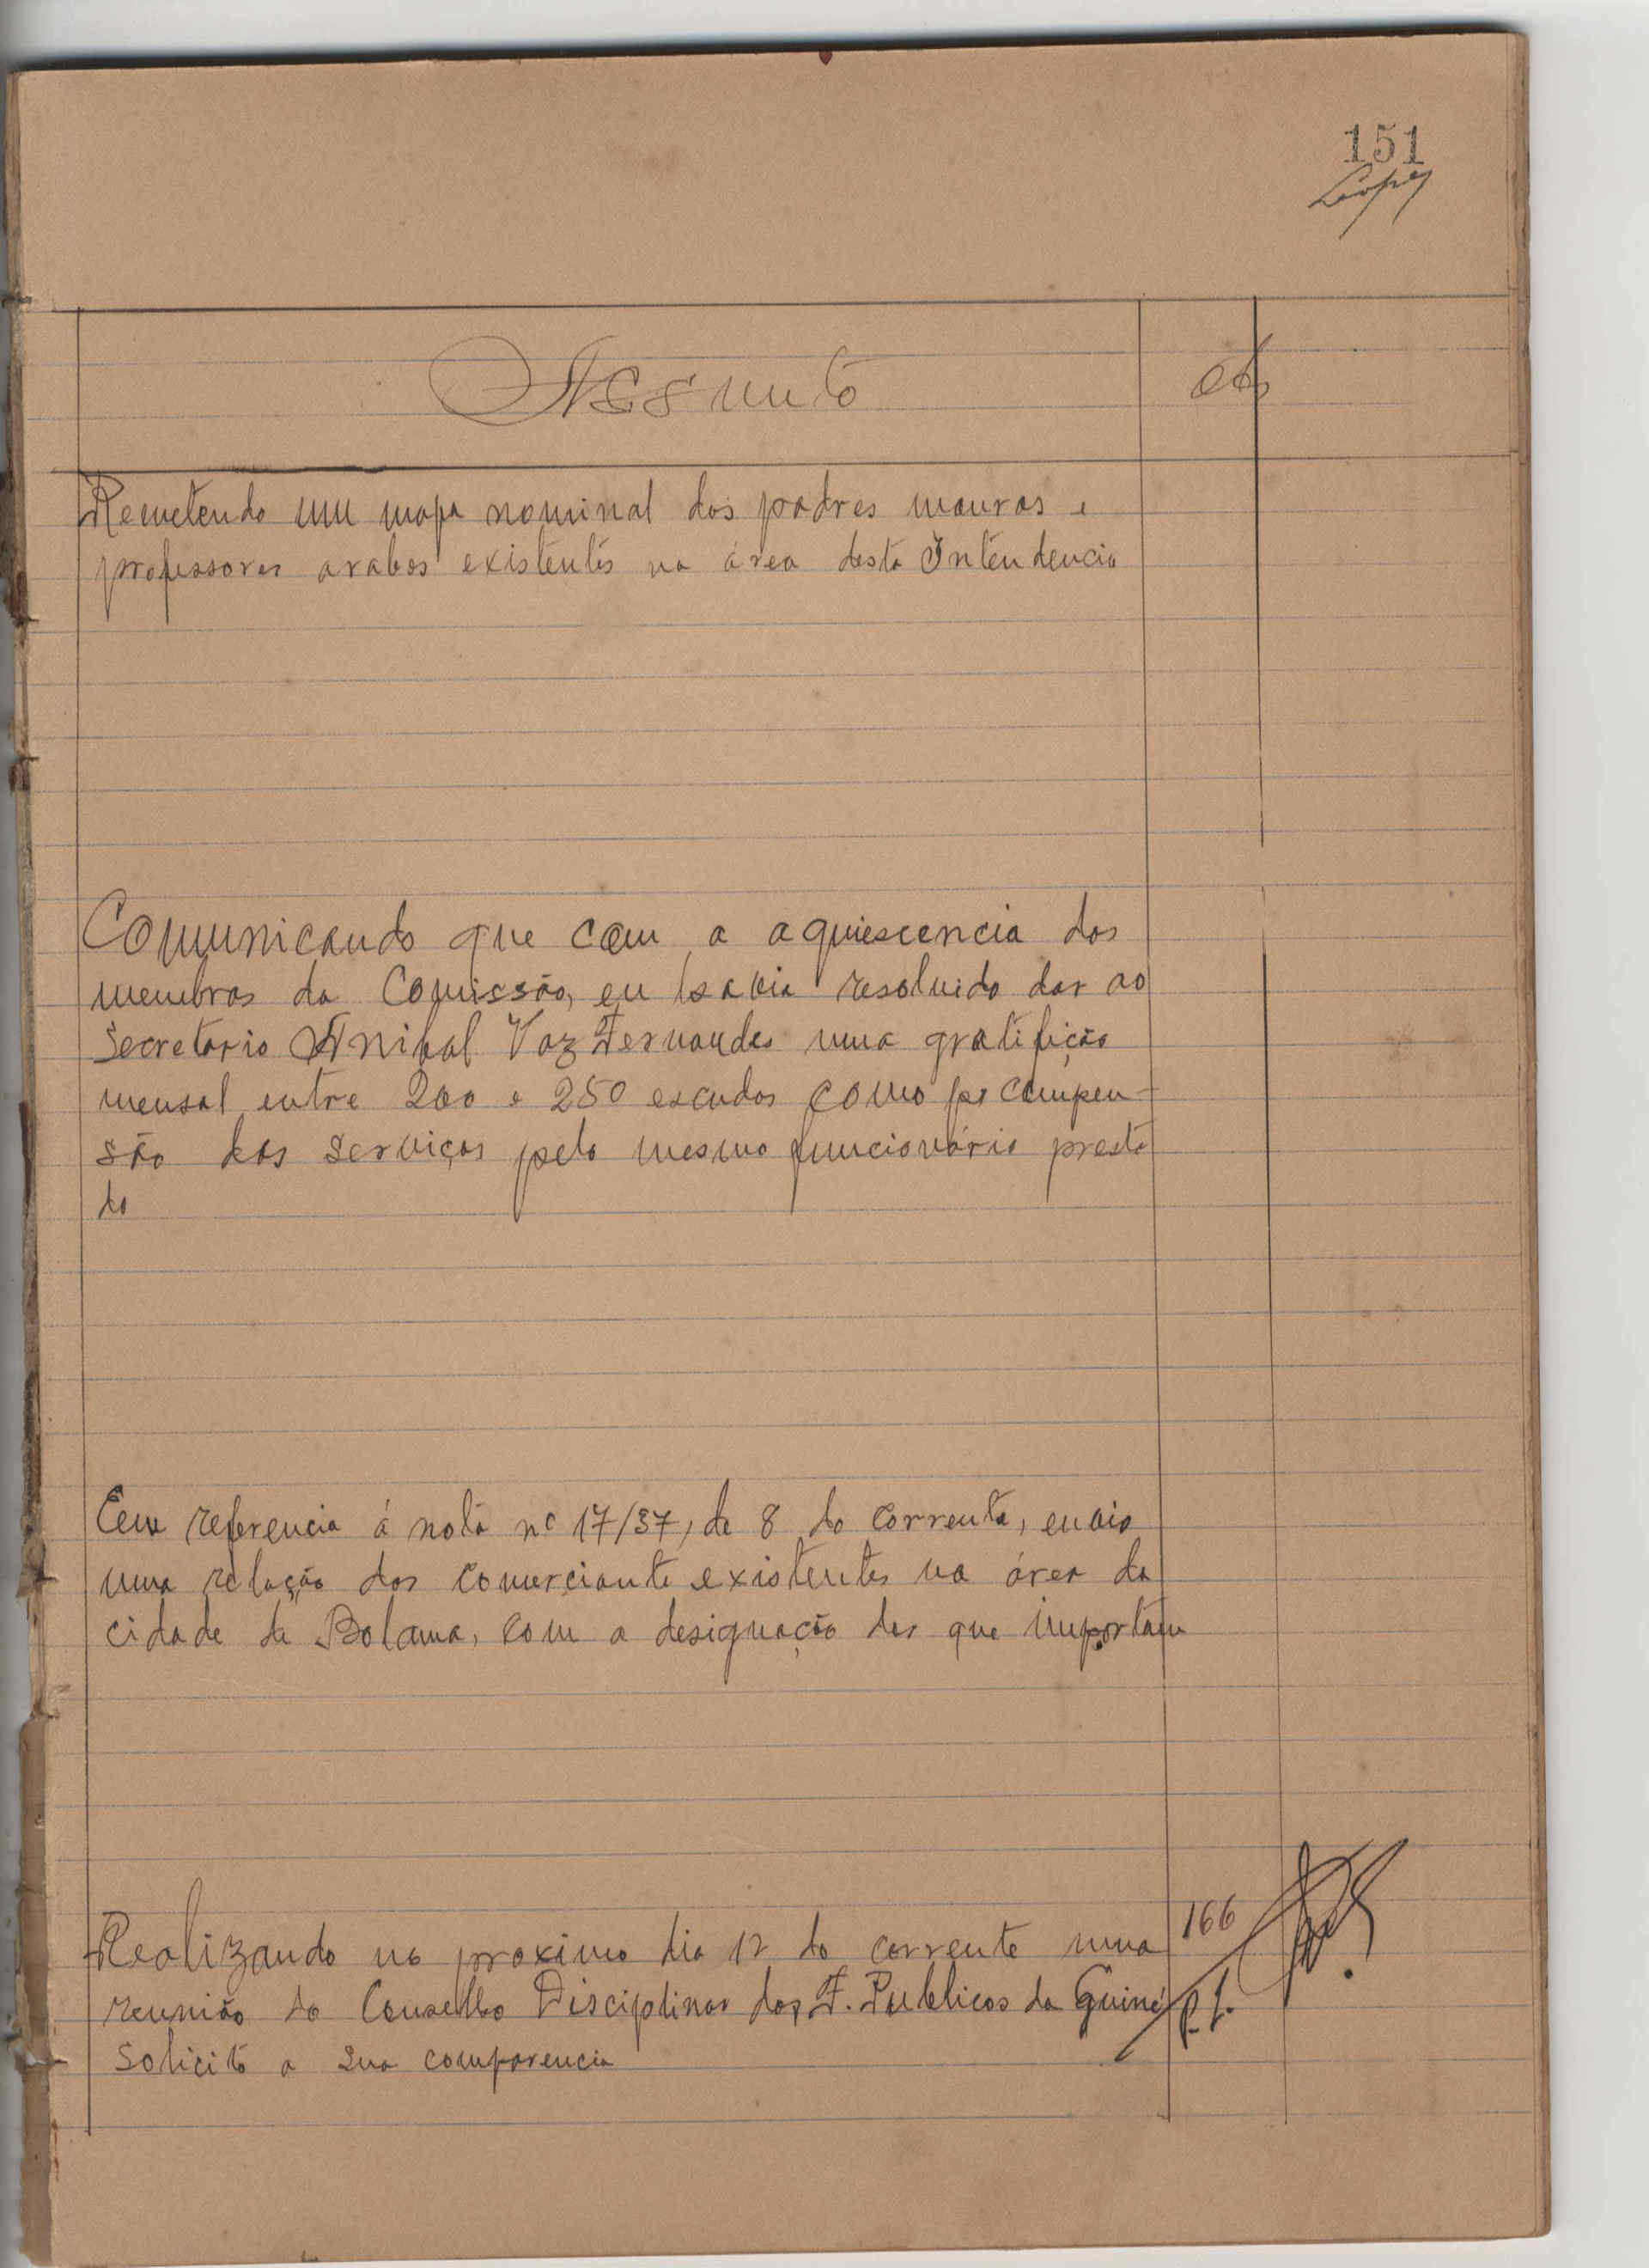 151
Lopes
Assunto
Obs
Remetendo um mapa nominal dos padres mouros e
professores arabes existentes na área desta Intendencia
Comunicando que com a aquiescencia dos
membros da Comissão, eu havia resolvido dar ao
Secretario Anibal Vaz Fernandes uma gratifição
mensal entre 200 e 250 escudos como compen-
são dos serviços pelo mesmo funcionário presta
do
Em referencia á nota nº 17/37, de 8 do corrente, envio
uma relação dos comerciante existentes na área da
cidade de Bolama, com a designação dos que importam
Realizando no proximo dia 12 do corrente uma
166
reunião do Conselho Disciplinar dos F. Publicos da Guiné
solicito a sua comparencia